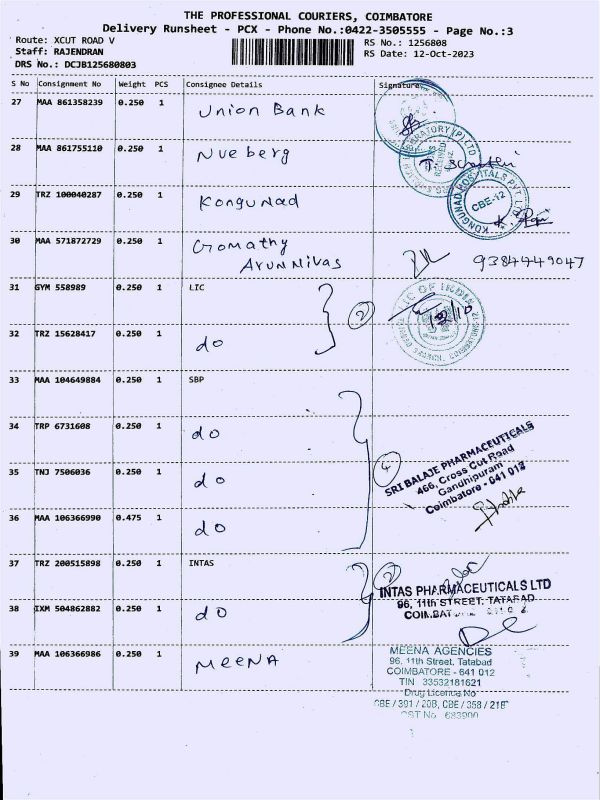 THE PROFESSIONAL COURIERS, COIMBATORE
Delivery Runsheet - PCX - Phone No.:0422-3505555 - Page No.:3
Route: XCUT ROAD V
RS No.: 1256808
Staff: RAJENDRAN
RS Date: 12-Oct-2023
DRS No.: DCJB125680803
S No Consignment No Weight PCS Consignee Details Signature
27 MAA 861358239 0.250 1 Union Bank
28 MAA 861755110 0.250 1 Nueberg
29 TRZ 100040287 0.250 1 Kongunad
KONGUNAD HOSPITALS PVT LTD
CBE-12
30 MAA 571872729 0.250 1 Gomathy
ArunNivas
9384449047
31 GYM 558989 0.250 1 LIC
2
LIC OF INDIA
12/10
32 TRZ 15628417 0.250 1 do
33 MAA 104649884 0.250 1 SBP
34 TRP 6731608 0.250 1 do
4
SRI BALAJE PHARMACEUTICALS
466, Cross Cut Road
Gandhipuram
Coimbatore - 641 012
35 TNJ 7506036 0.250 1 do
36 MAA 106366990 0.475 1 do
37 TRZ 200515898 0.250 1 INTAS
2
INTAS PHARMACEUTICALS LTD
96, 11th STREET, TATABAD
38 IXM 504862882 0.250 1 do
39 MAA 106366986 0.250 1 MeeNA
MEENA AGENCIES
96, 11th Street, Tatabad
COIMBATORE - 641 012
TIN 33532181621
Drug Licence No
CBE / 391 / 20B, CBE / 358 / 21B
CST No 683900